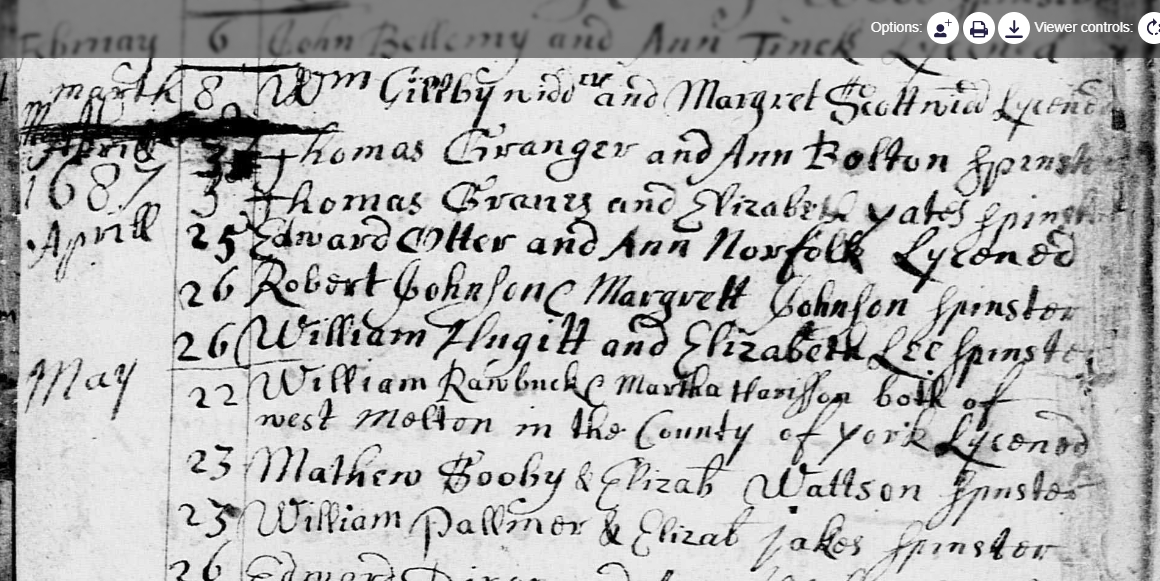 Options: Viewer controls:
February 6 John Bellamy and Ann Tinck Lycened
marth 8 Wm Gillby widder and Margret Scott wid Lycened
Aprill 3 Thomas Granger and Ann Bolton spinster
1687 3 Thomas Graves and Elizabeth yates spinster
Aprill 25 Edward Otter and Ann Norfolk Lycened
26 Robert Johnson & Margrett Johnson spinster
26 William Hugitt and Elizabeth Lee spinster
May 22 William Rawbuck & Martha Harisson both of
west Melton in the County of york Lycened
23 Mathew Booby & Elizab Wattson spinster
23 William Pallmer & Elizab Jakes spinster
26 Edward